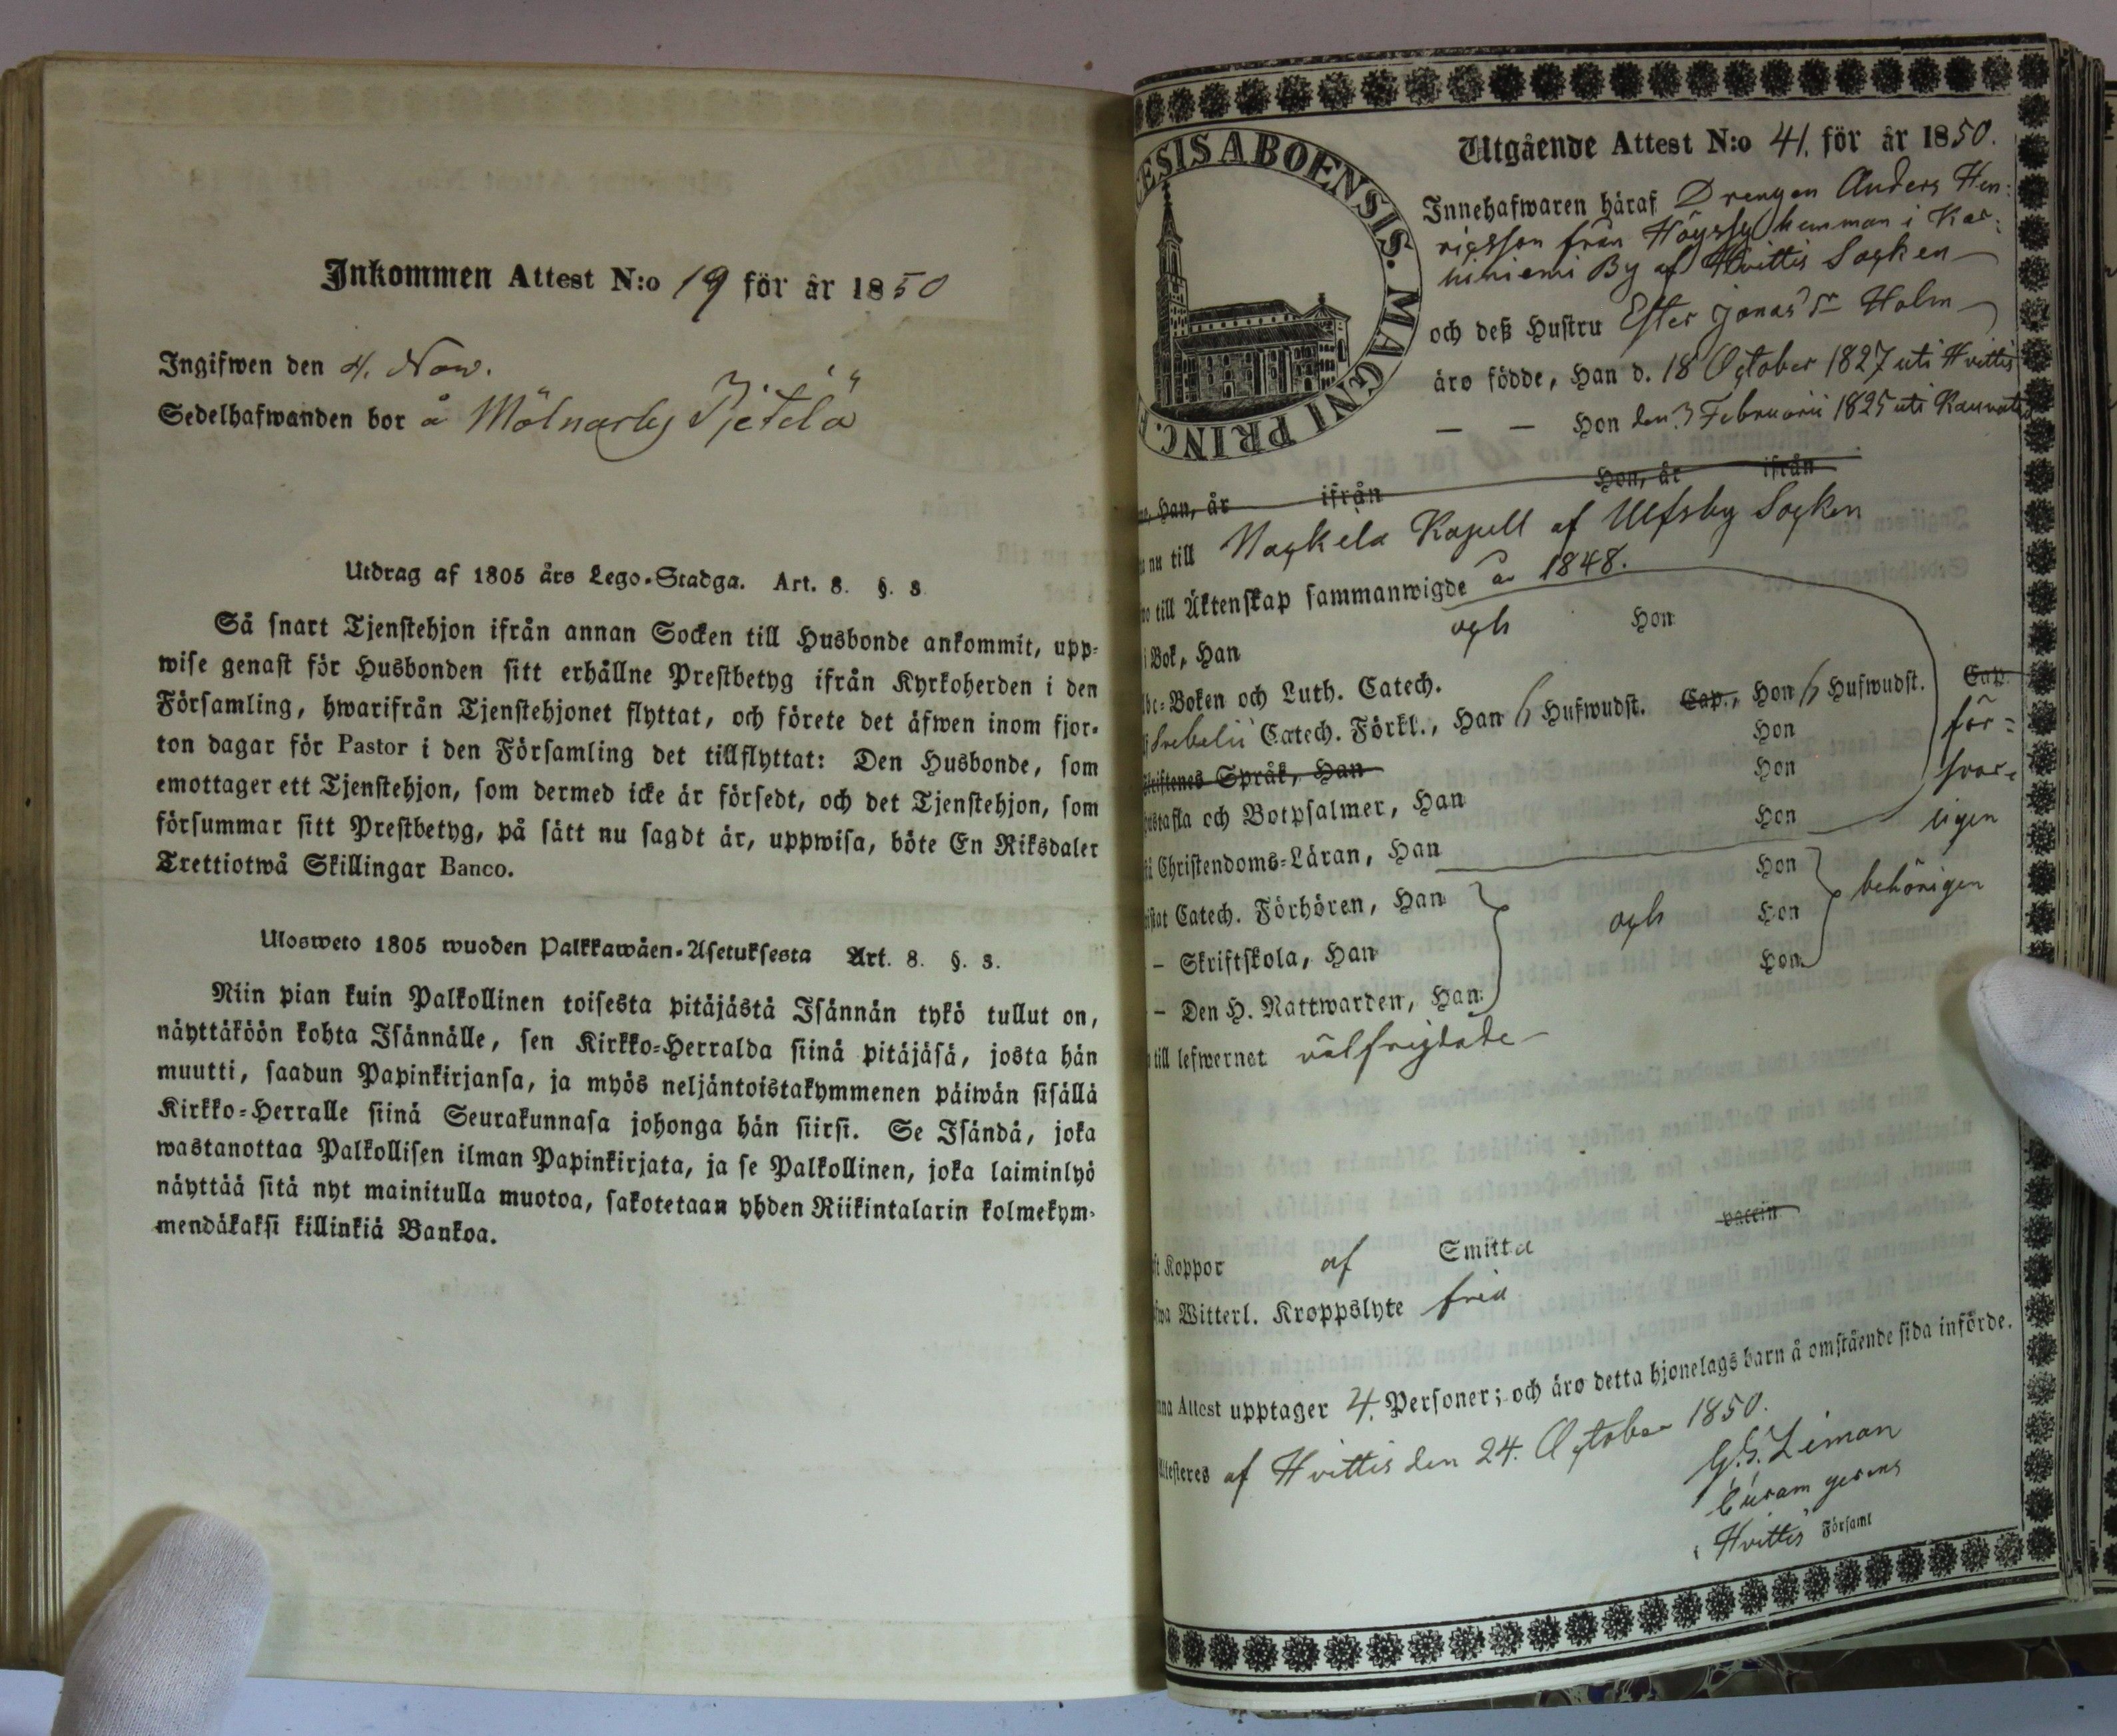 Inkommen Attest N:o 19 för år 1850
Ingifwen den 4. Now.
Sedelhafwanden bor å Mölnarby Pjetilä
Utdrag af 1805 års Lego-Stadga. Art. 8. §. 3
Så snart Tjenstehjon ifrån annan Socken till Husbonde ankommit, upp-
wise genast för Husbonden sitt erhållne Prestbetyg ifrån Kyrkoherden i den
Församling, hwarifrån Tjenstehjonet flyttat, och förete det äfwen inom fjor-
ton dagar för Pastor i den Församling det tillflyttat: Den Husbonde, som
emottager ett Tjenstehjon, som dermed icke är försedt, och det Tjenstehjon, som
försummar sitt Prestbetyg, på sätt nu sagdt är, uppwisa, böte En Riksdaler
Trettiotwå Skillingar Banco.
Ulosweto 1805 wuoden Palkkawäen-Asetuksesta Art. 8. §. 3.
Niin pian kuin Palkollinen toisesta pitäjästä Isännän tykö tullut on,
näyttäköön kohta Isännälle, sen Kirkko-Herralda siinä pitäjäsä, josta hän
muutti, saadun Papinkirjansa, ja myös neljäntoistakymmenen päiwän sisällä
Kirkko-Herralle siinä Seurakunnasa johonga hän siirsi. Se Isändä, joka
wastanottaa Palkollisen ilman Papinkirjata, ja se Palkollinen, joka laiminlyö
näyttää sitä nyt mainitulla muotoa, sakotetaan yhden Riikintalarin kolmekym-
mendäkaksi killinkiä Bankoa.
ESIS ABOENSIS. MAGNI PRINC.
Utgående Attest N:o 41. för år 1850.
Innehafwaren häraf Drengen Anders Hen-
ricsson från Höyssy hemman i Kar-
hiniemi By af Hvittis Socken
och deß Hustru Ester Jonasdr Holm
äro födde, Han d. 18 October 1827 uti Hvittis
— — Hon den 3 Februarii 1825 uti
Han, år ifrån Hon, år ifrån
nu till Nackela Kapell af Ulfsby Socken
till Äktenskap sammanwigde år 1848.
i Bok, Han och Hon
Boken och Luth. Catech.
Svebelii Catech. Förkl., Han 6 Hufwudst. Cap., Hon 6 Hufwudst. Cap.
Skriftenes Språk, Han Hon för-
Hustafla och Botpsalmer, Han Hon svar-
Christendoms-Läran, Han Hon ligen
Catech. Förhören, Han Hon
– Skriftskola, Han och Hon behörigen
– Den H. Nattwarden, Han Hon
till lefwernet välfrejdade
Koppor af Smitta vaccin
Witterl. Kroppslyte fria
Attest upptager 4. Personer; och äro detta hjonelags barn å omstående sida införde.
Attesteres af Hvittis den 24. October 1850.
G. S. Liman
Curam gerens
i Hvittis Församl